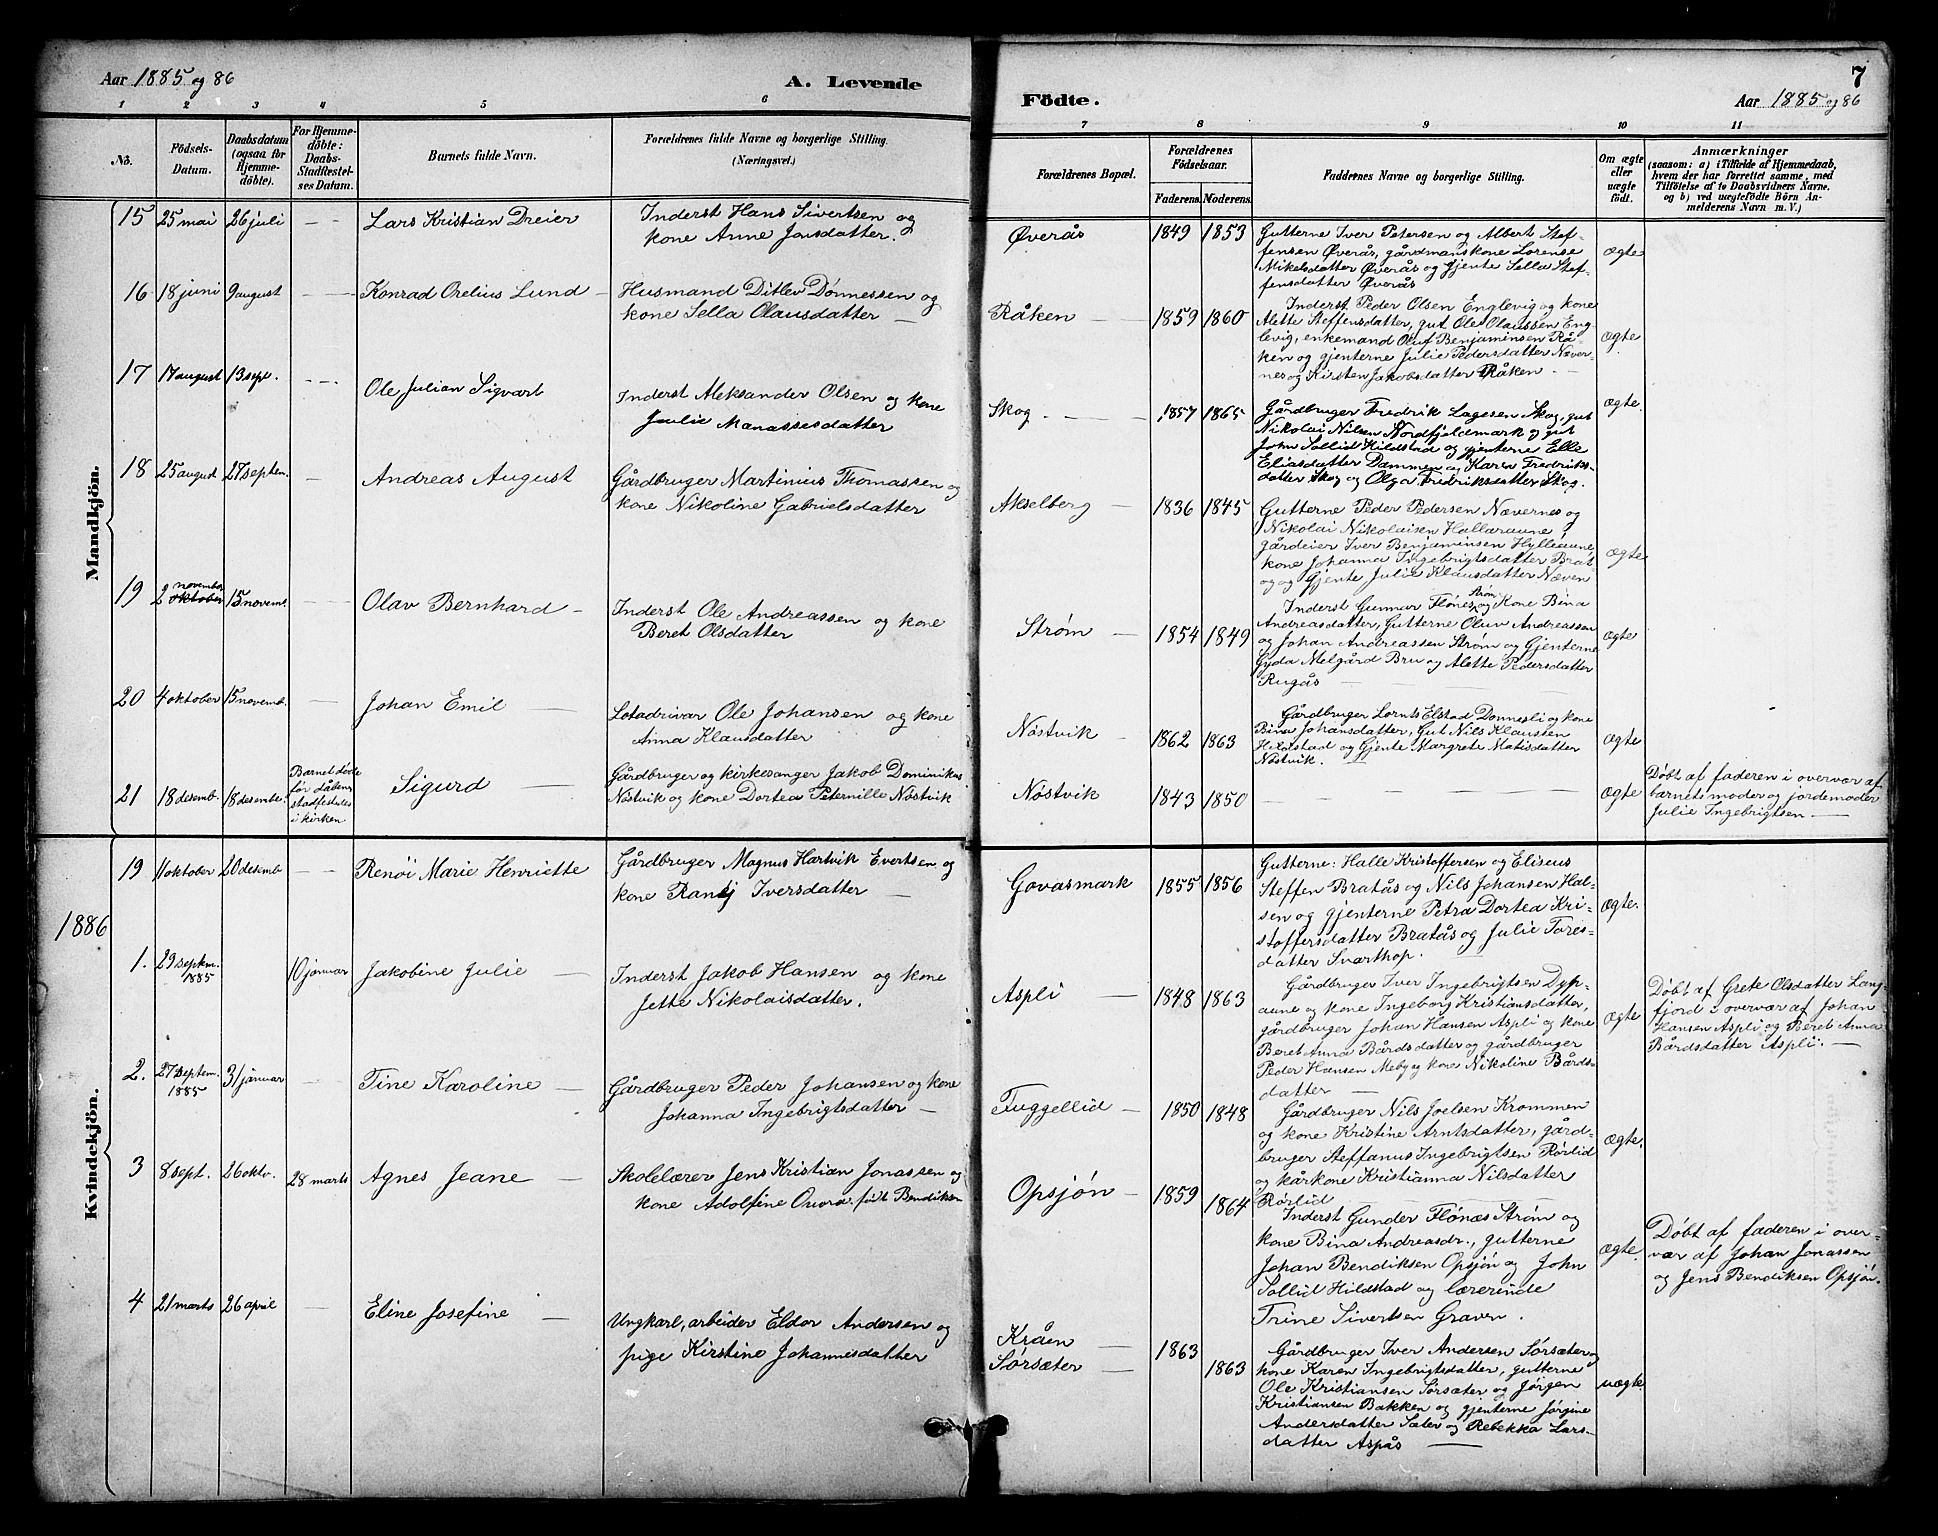 Aar 1885 og 86
A. Levende
Födte.
7
Aar 1885 og 86
1 2 3 4 5 6 7 8 9 10 11
No.
Födsels-
Datum.
Daabsdatum
(ogsaa for
Hjemme-
döbte).
For Hjemme-
döbte:
Daabs-
Stadfæstel-
ses Datum.
Barnets fulde Navn.
Forældrenes fulde Navne og borgerlige Stilling.
(Næringsvei.)
Forældrenes Bopæl.
Forældrenes
Födselsaar.
Faderens. Moderens.
Faddernes Navne og borgerlige Stilling.
Om ægte
eller
uægte
födt.
Anmærkninger
(saasom: a) i Tilfælde af Hjemmedaab,
hvem der har forrettet samme, med
Tilföielse af to Daabsvidners Navne.
og b) ved uægtefödte Börn An-
melderens Navn m. V.)
Mandkjön.
15 25 mai 26 juli — — Lars Kristian Dreier
Inderst Hans Sivertsen og
kone Anne Jonsdatter.
Øverås 1849 1853
Gutterne Iver Petersen og Albert Stef-
fensen Øverås, gårdmanskone Lorense
Nikelsdatter Øverås og Gjente Sella Stef-
fensdatter Øverås
ægte
16 18 juni 9 august — — Konrad Orelius Lund —
Husmand Ditlev Dønnessen og
kone Sella Olausdatter —
Råken — 1859 1860
Inderst Peder Olsen Englevig og kone
Alette Steffensdatter, gut Ole Olaussen Eng-
levig, enkemand Oluf Benjaminsen Rå-
ken og gjenterne Julie Pedersdatter Næver-
nes og Kirsten Jakobsdatter Råken. —
ægte
17 17 august 13 sept. — — Ole Julian Sigvart
Inderst Aleksander Olsen og kone
Julie Manassesdatter
Skog. — 1857 1865
Gårdbruger Fredrik Lagesen Skog, gut
Nikolai Nilsen Nordfjeldmark og gut
John Sollid Hildstad og gjenterne Elle
Eliasdatter Dammen og Karen Fredriks-
datter Skog og Olga Fredriksdatter Skog.
ægte.
18 25 august 27 septem. — Andreas August
Gårdbruger Martinius Thomassen og
kone Nikoline Gabrielsdatter
Akselberg — 1836 1845
Gutterne Peder Pedersen Nævernes og
Nikolai Nikolaisen Hallaraune,
gårdeier Iver Benjaminsen Hylleaune,
kone Johanna Ingebrigtsdatter Brat-
og og Gjente Julie Klausdatter Næven
ægte
19 2 november oktober 15 novemb. — Olav Bernhard —
Inderst Ole Andreassen og kone
Beret Olsdatter
Strøm — 1854 1849
Inderst Gunnar Flønes Strøm og Kone Bina
Andreasdatter, Gutterne Oluv Andreassen
og Johan Andreassen Strøm og Gjenterne
Gyda Melgård Bru og Alette Pedersdatter
Rugås — — —
ægte
20 4 oktober 15 novemb. — Johan Emil —
Lotadrivar Ole Johansen og kone
Anna Klausdatter
Nøstvik — 1862 1863
Gårdbruger Lornts Elstad Dønnesli og kone
Bina Johansdatter, Gut Nils Klaussen
Hildstad og Gjente Margrete Matisdatter
Nøstvik.
ægte
21 18 desemb. 18 desembe.
Barnet døde
før dåbens
stadfestelse
i kirken
Sigurd —
Gårdbruger og kirkesanger Jakob Dominikus
Nøstvik og kone Dortea Peternille Nøstvik
Nøstvik 1843 1850 — — — —
ægte
Døbt af faderen i overvær af
barnets moder og jordemoder
Julie Ingebrigtsen —
Kvindekjön.
19 11 oktober 20 desemb — — Renøi Marie Henriette
Gårdbruger Magnus Hartvik Evertsen og
kone Randj Iversdatter —
Govasmark 1855 1856
Gutterne: Halle Kristoffersen og Eliseus
Steffen Bratås og Nils Johansen Hal-
sen og gjenterne Petra Dortea Kri-
stoffersdatter Bratås og Julie Tores-
datter Svarthop. —
ægte.
1886
1. 29 septem. 1885 10 januar Jakobine Julie —
Inderst Jakob Hansen og kone
Jette Nikolaisdatter.
Aspli — 1848 1863
Gårdbruger Iver Ingebrigtsen Dyp-
aune og kone Ingeborg Kristiansdatter,
gårdbruger Johan Hansen Aspli og kone
Beret Anna Bårdsdatter og gårdbruger
Peder Hansen Meby og kone Nikoline Bårds-
datter —
ægte
Døbt af Grete Olsdatter Lang-
fjord i overvær af Johan
Hansen Aspli og Beret Anna
Bårdsdatter Aspli. —
2. 27 septem. 1885 31 januar — Tine Karoline —
Gårdbruger Peder Johansen og kone
Johanna Ingebrigtsdatter —
Fuggellid — 1850 1848
Gårdbruger Nils Joelsen Krommen
og kone Kristine Arntsdatter, gård-
bruger Steffanus Ingebrigtsen Rørlid
og kårkone Kristianna Nilsdatter
Rørlid — —
ægte.
3 8 sept. 26 oktv. 28 marts Agnes Jeane —
Skolelærer Jens Kristian Jonassen og
kone Adolfine født Bendiksen
Opsjøn — 1859 1864
Inderst Gunder Flønæs Strøm og
kone Bina Andreasdr., gutterne
Johan Bendiksen Opsjøn og John
Sollid Hildstad og lærerinde
Trine Sivertsen Graven.
ægte.
Døbt af faderen i over-
vær af Johan Jonassen
og Jens Bendiksen Opsjøn.
4 21 marts 26 april — Eline Josefine —
Ungkarl, arbeider Eldor Andersen og
pige Kirstine Johannesdatter
Kråen —
Sørsæter —
1863
1863
Gårdbruger Iver Andersen Sørsæter og
kone Karen Ingebrigtsdatter, gutterne
Ole Kristiansen Sørsæter og Jørgen
Kristiansen Bakken og gjenterne Jørgine
Andersdatter Sæter og Rebekka Lars-
datter Aspås —
uægte.